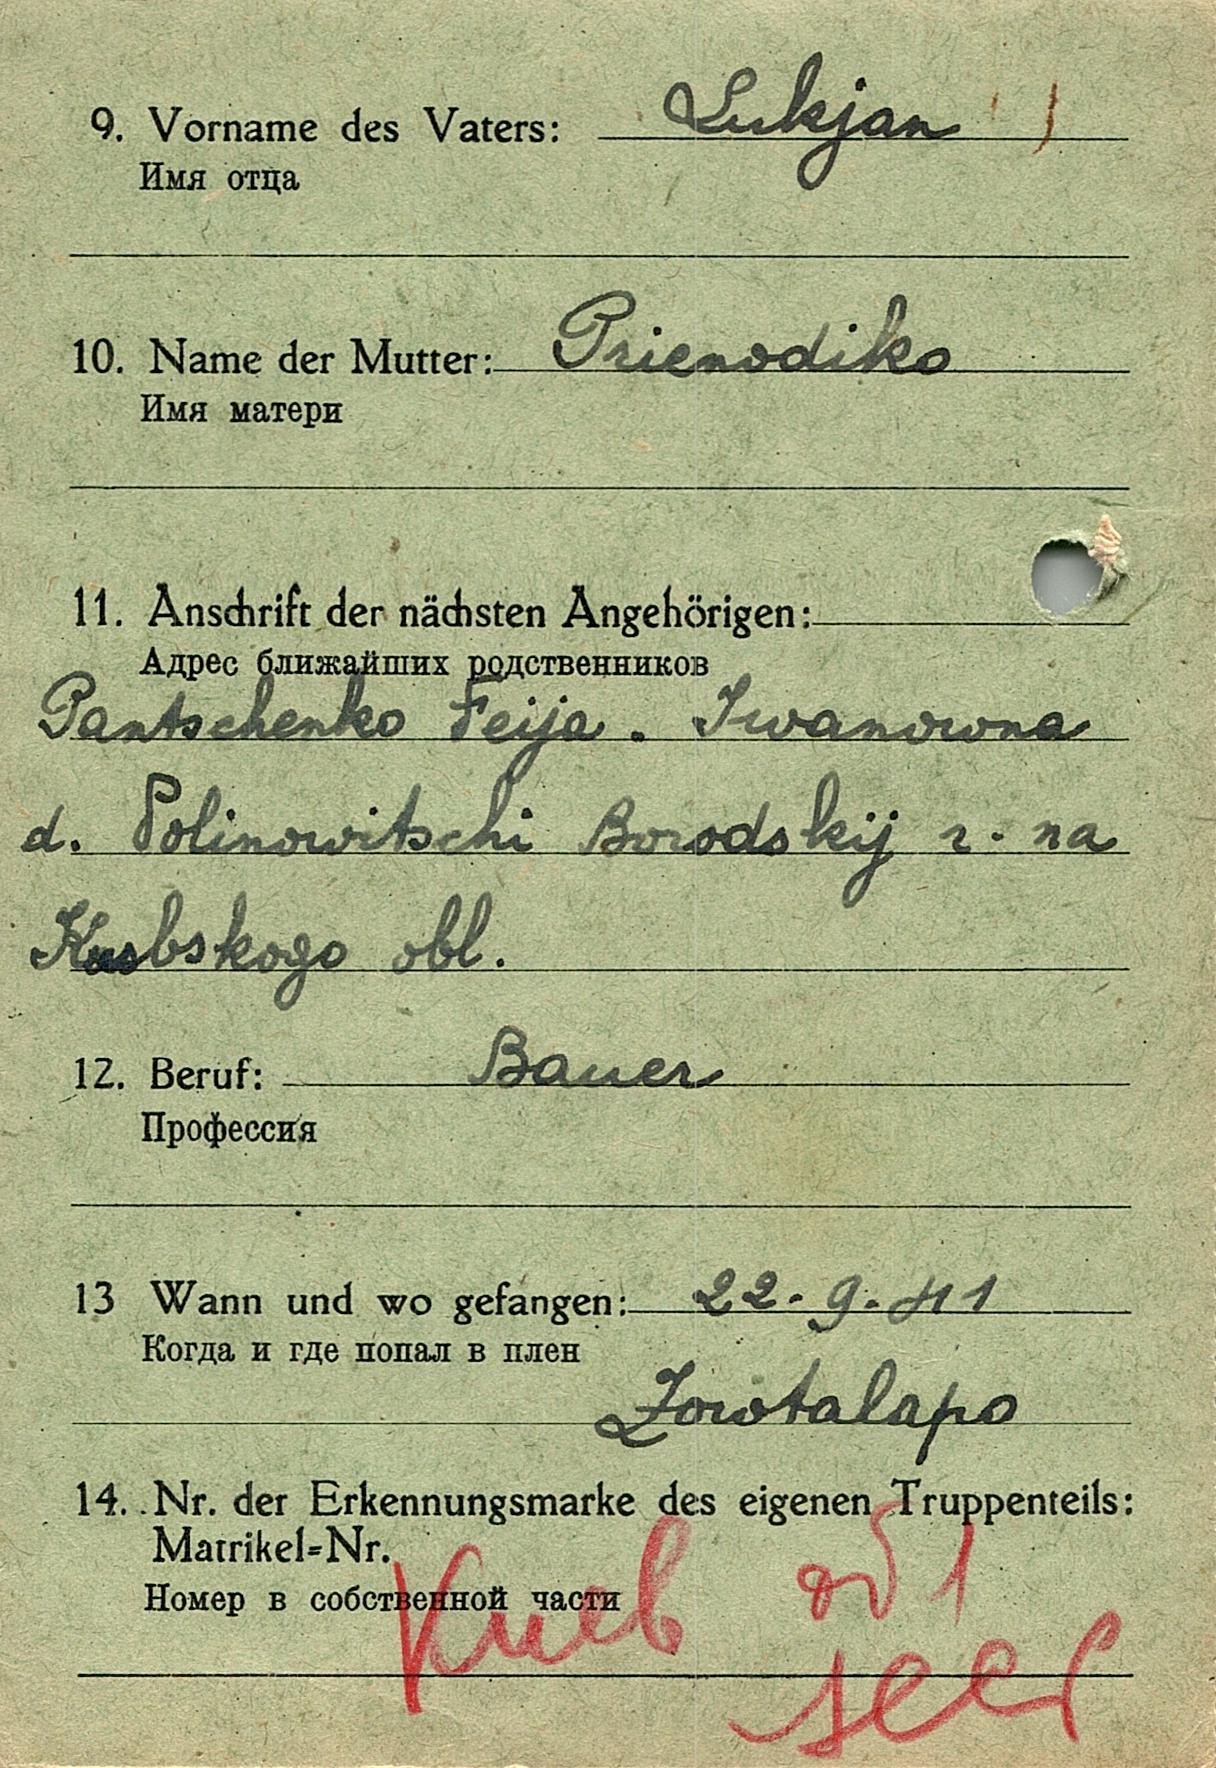 9. Vorname des Vaters: Lukjan
Имя отца
10. Name der Mutter: Prienodiko
Имя матери
11. Anschrift der nächsten Angehörigen:
Адрес ближайших родственников
Pantschenko Feija. Iwanowna
d. Polinowitschi Borodskij r. na
obl.
12. Beruf: Bauer
Профессия
13 Wann und wo gefangen: 22-9-41
Когда и где попал в плен
Zowtalapo
14. Nr. der Erkennungsmarke des eigenen Truppenteils:
Matrikel=Nr.
Номер в собственной части
Киев